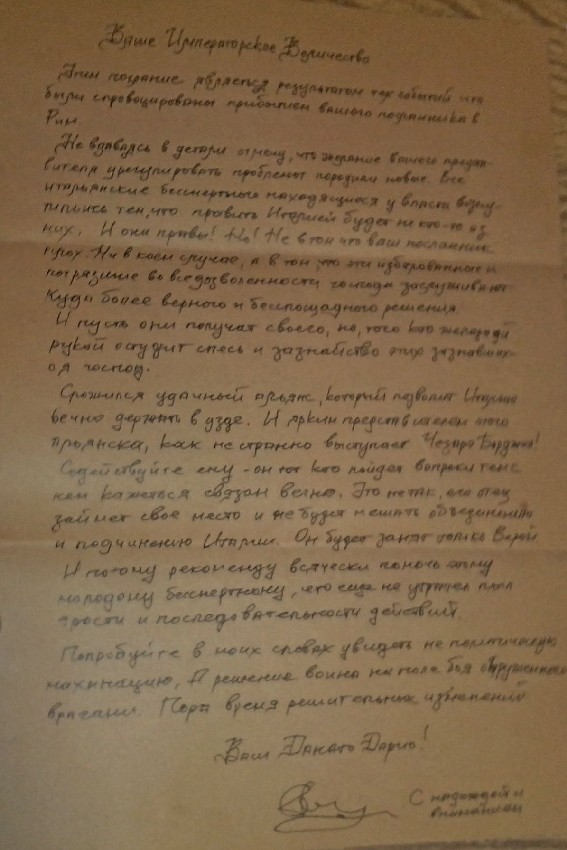 Ваше Императорское Величество
Этим послание является результатом тех событий что
были спровоцированы прибытием вашего посланника в
Рим.
Не вдаваясь в детали отмечу, что желание вашего предста-
вителя урегулировать проблемы породили новые. Все
итальянские бессмертные находящиеся у власти возму-
тились тем, что править Италией будет не кто-то из
них. И они правы! Но! Не в том что ваш посланник
плох. Ни в коем случае, а в том, что эти избалованные и
погрязшие во вседозволенности господа заслуживают
куда более верного и беспощадного решения.
И пусть они получат своего, но, того кто железной
рукой остудит спесь и зазнайство этих
господ.
Сложился удачный альянс, который позволит Италию
вечно держать в узде. И ярким представителем этого
альянса, как не странно выступает Чезаре Борджиа!
Содействуйте ему - он тот кто пойдет вопреки теме
кем кажеться связан вечно. Это не так, его отец
займет свое место и не будет мешать объединению
и подчинению Италии. Он будет занят только Верой.
И потому рекомендую всячески помочь этому
молодому бессмертному, что еще не утратил
ярости и последовательности действий.
Попробуйте в моих словах увидеть не политическую
махинацию, А решение воина на поле боя окруженного
врагами. Пора время решительных изменений.
Ваш Данато Дарио!
С надеждой и